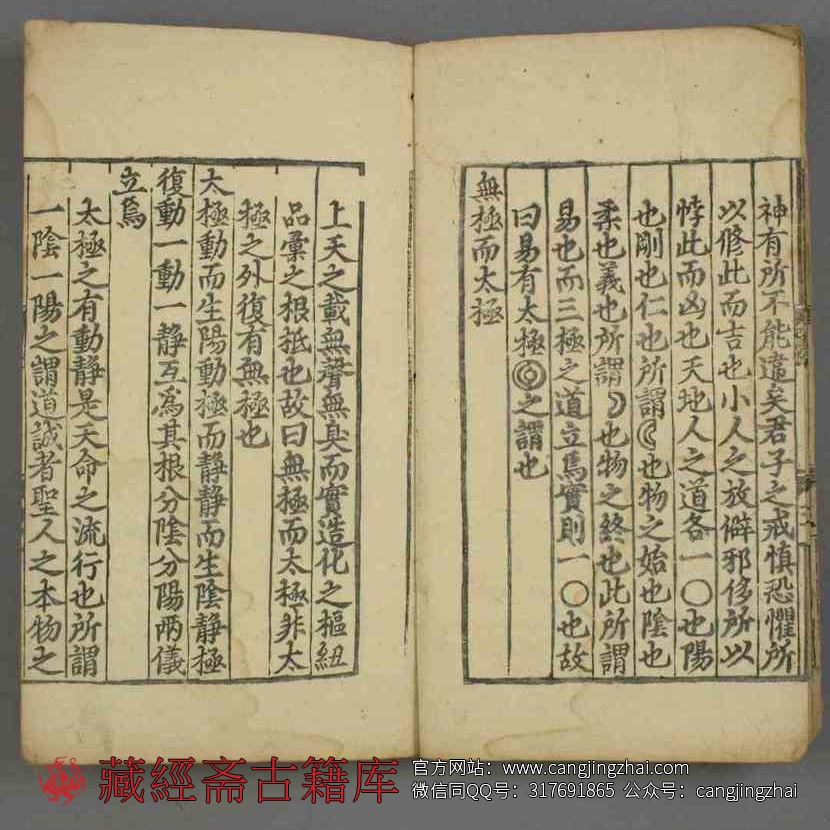 神有所不能違矣君子之戒慎恐懼所
以修此而吉也小人之放僻邪侈所以
悖此而凶也天地人之道各一〇也陽
也剛也仁也所謂☽也物之始也陰也
柔也義也所謂☾也物之終也此所謂
易也而三極之道立焉實則一〇也故
曰易有太極◎之謂也
無極而太極
上天之載無聲無臭而實造化之樞紐
品彙之根柢也故曰無極而太極非太
極之外復有無極也
太極動而生陽動極而静静而生陰静極
復動一動一静互為其根分陰分陽兩儀
立焉
太極之有動靜是天命之流行也所謂
一陰一陽之謂道誠者聖人之本物之
藏經斋古籍库
官方网站：www.cangjingzhai.com
微信同QQ号：317691865 公众号：cangjingzhai